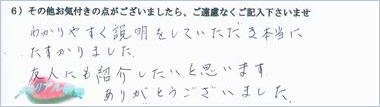 6）その他お気付きの点がございましたら、ご遠慮なくご記入下さいませ
わかりやすく説明をしていただき本当に
たすかりました。
友人にも紹介したいと思います。
ありがとうございました。